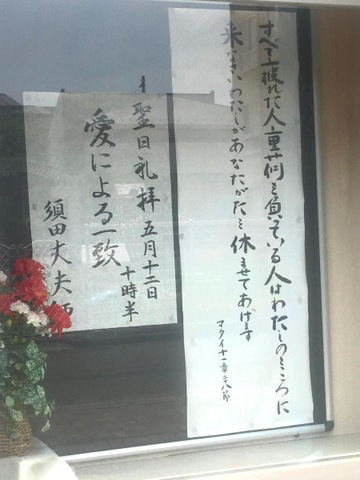 すべて疲れた人、重荷を負っている人はわたしのところに
来なさいわたしがあなたがたを休ませてあげます
マタイ十一章二八節
聖日礼拝 五月十二日
十時半
愛による一致
須田丈夫師